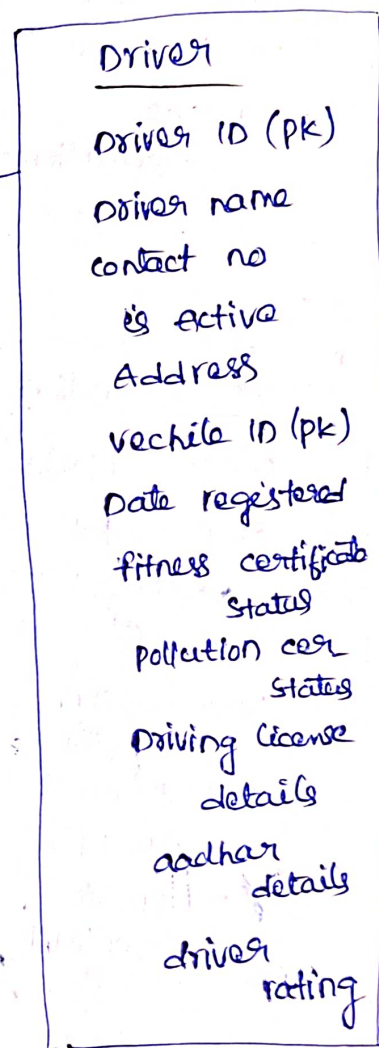 Driver
Driver ID (PK)
Driver name
contact no
is Active
Address
vechile ID (PK)
Date registered
fitness certificate
status
pollution cer
status
Driving license
details
aadhar
details
driver
rating